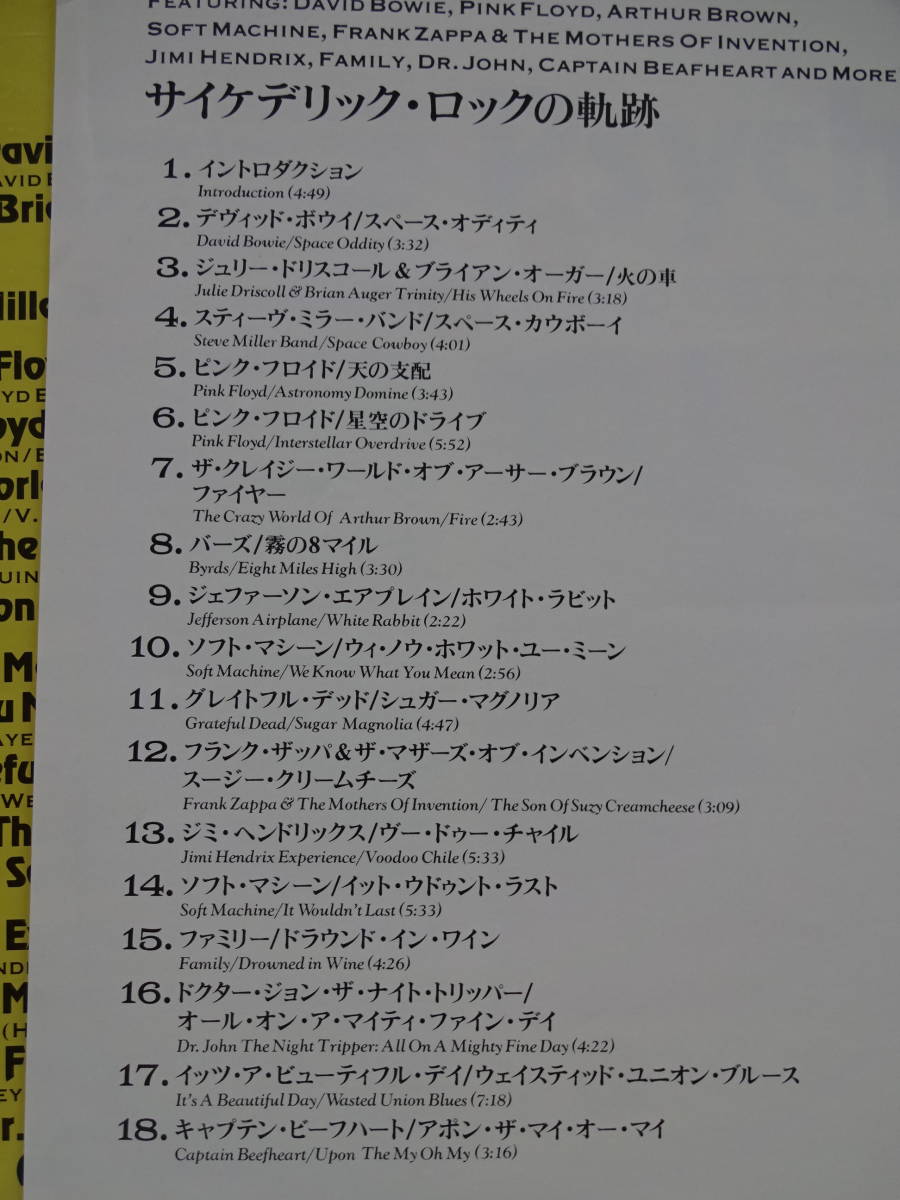 FEATURING: DAVID BOWIE, PINK FLOYD, ARTHUR BROWN,
SOFT MACHINE, FRANK ZAPPA & THE MOTHERS OF INVENTION,
JIMI HENDRIX, FAMILY, DR. JOHN, CAPTAIN BEAFHEART AND MORE
サイケデリック・ロックの軌跡
1. イントロダクション
Introduction (4:49)
2. デヴィッド・ボウイ/スペース・オディティ
David Bowie/Space Oddity (3:32)
3. ジュリー・ドリスコール&ブライアン・オーガー/火の車
Julie Driscoll & Brian Auger Trinity/His Wheels On Fire (3:18)
4. スティーヴ・ミラー・バンド/スペース・カウボーイ
Steve Miller Band/Space Cowboy (4:01)
5. ピンク・フロイド/天の支配
Pink Floyd/Astronomy Domine (3:43)
6. ピンク・フロイド/星空のドライブ
Pink Floyd/Interstellar Overdrive (5:52)
7. ザ・クレイジー・ワールド・オブ・アーサー・ブラウン/
ファイヤー
The Crazy World Of Arthur Brown/Fire (2:43)
8. バーズ/霧の8マイル
Byrds/Eight Miles High (3:30)
9. ジェファーソン・エアプレイン/ホワイト・ラビット
Jefferson Airplane/White Rabbit (2:22)
10. ソフト・マシーン/ウィ・ノウ・ホワット・ユー・ミーン
Soft Machine/We Know What You Mean (2:56)
11. グレイトフル・デッド/シュガー・マグノリア
Grateful Dead/Sugar Magnolia (4:47)
12. フランク・ザッパ&ザ・マザーズ・オブ・インベンション/
スージー・クリームチーズ
Frank Zappa & The Mothers Of Invention/ The Son Of Suzy Creamcheese (3:09)
13. ジミ・ヘンドリックス/ヴー・ドゥー・チャイル
Jimi Hendrix Experience/Voodoo Chile (5:33)
14. ソフト・マシーン/イット・ウドゥント・ラスト
Soft Machine/It Wouldn't Last (5:33)
15. ファミリー/ドラウンド・イン・ワイン
Family/Drowned in Wine (4:26)
16. ドクター・ジョン・ザ・ナイト・トリッパー/
オール・オン・ア・マイティ・ファイン・デイ
Dr. John The Night Tripper: All On A Mighty Fine Day (4:22)
17. イッツ・ア・ビューティフル・デイ/ウェイスティッド・ユニオン・ブルース
It's A Beautiful Day/Wasted Union Blues (7:18)
18. キャプテン・ビーフハート/アポン・ザ・マイ・オー・マイ
Captain Beefheart/Upon The My Oh My (3:16)